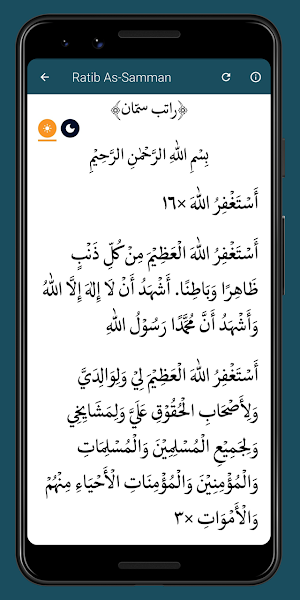 Ratib As-Samman
﴿راتب سمّان﴾
بِسْمِ اللهِ الرَّحْمٰنِ الرَّحِيْمِ
أَسْتَغْفِرُ اللهَ ×١٦
أَسْتَغْفِرُ اللهَ الْعَظِيْمَ مِنْ كُلِّ ذَنْبٍ
ظَاهِرًا وَبَاطِنًا. أَشْهَدُ أَنْ لَا إِلٰهَ إِلَّا اللهُ
وَأَشْهَدُ أَنَّ مُحَمَّدًا رَسُوْلُ اللهِ
أَسْتَغْفِرُ اللهَ الْعَظِيْمَ لِيْ وَلِوَالِدَيَّ
وَلِأَصْحَابِ الْحُقُوْقِ عَلَيَّ وَلِمَشَايِخِي
وَلِجَمِيْعِ الْمُسْلِمِيْنَ وَالْمُسْلِمَاتِ
وَالْمُؤْمِنِيْنَ وَالْمُؤْمِنَاتِ الْأَحْيَاءِ مِنْهُمْ
وَالْأَمْوَاتِ ×٣